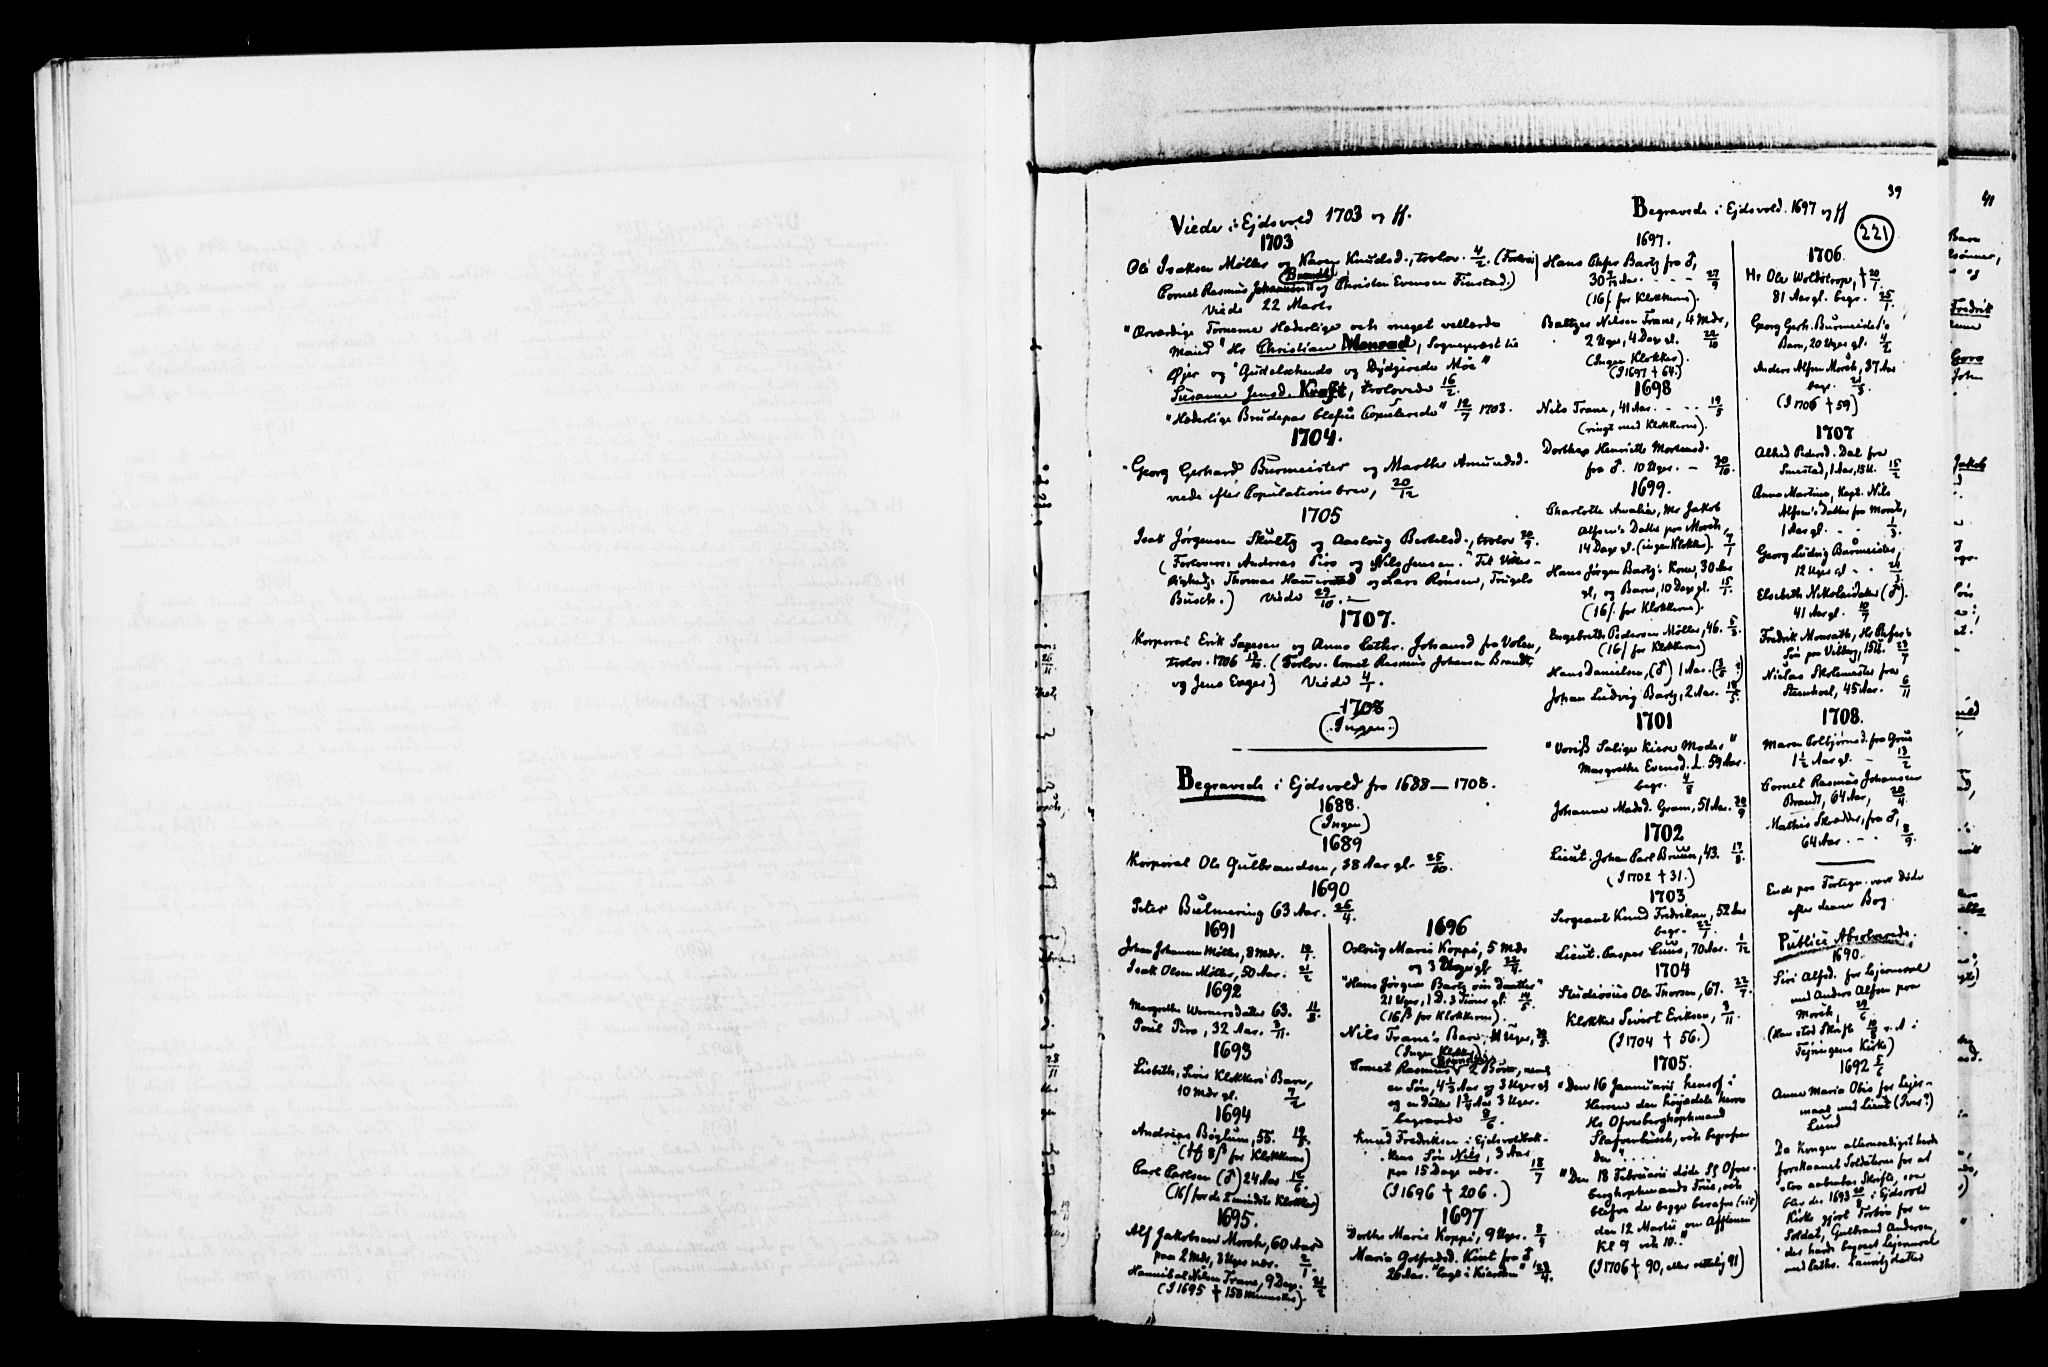 39
221
Viede i Ejdsvold 1703 og ff.
1703
Ole Isaksen Møller og Karen Knudsd., trolov. 4/2. (Forlov:
Cornet Rasmus Johansen Brandt og Christen Evensen Finstad.)
Viede 22 Marts
"Ærværdige Fornemme Hæderlige och meget vellærde
Mand" Hr Christian Monrad, Sognepræst til
Øjer og "Gudelskende og Dydzirede Møe"
Susanne Jensd. Kraft, trolovede 16/2
"Hæderlige Brudepar blefue Copulerede" 12/7 1703.
1704.
Georg Gerhard Burmeister og Marthe Amundsd.
viede efter Copulationsbrev, 20/12
1705
Isak Jørgensen Skultz og Aasloug Bertelsd., trolov 20/9.
(Forlovere: Andreas Piro og Nils Jensen. Til Vitter-
lighed: Thomas Hammerstad og Lars Rønsen, Trugels
Busch.) Viede 29/10.
1707.
Korporal Erik Sepesen og Anne Cathr. Johansd fra Volen,
trolov. 1706 (Forlov. Cornet Rasmus Johansen Brandt,
og Jens Eeges) Viede 4/1.
1708
(Ingen.)
Begravede i Ejdsvold fra 1688–1708.
1688.
(Ingen)
1689
Korporal Ole Gulbrandsen, 38 Aar gl. 25/10.
1690
Peter Bulmering 63 Aar. 26/4.
1691
Johan Johansen Møller, 8 Mdr. 18/1.
Isak Olsen Møller, 50 Aar. 21/2
1692
Margrethe Wernersdatter 63. 11/3.
Poul Piro, 32 Aar. 3/11.
1693
Lisbeth, Sivis Klokkers Barn,
10 Mdr gl. 7/2
1694
Andreas Bøglum, 55.
(8 ß for Klokkerne)
Carl Carlsen (♂) 24 Aar 18/6.
(16/ for de 2 mindste Klokker)
1695.
Alf Jakobsen Morch, 60 Aar
paa 2 Mdr, 3 Uger nær. 2/1.
Hannibal Nilsen Trane, 9 Dage. 21/2
(I 1695 † 158 Mennesker).
1696
Oslaug Marie Koppi, 5 Mdr
og 3 Uger gl. 22/4.
"Hans Jørgen Bartz sin Daatter"
21 Uger, 1 D. 3 Timer gl. 14/5.
(16ß for Klokkerne).
Nils Trane's Barn, 11 Uger,
(Ingen Klokke)
Cornet Rasmus Brandts 2 Børn, neml.
en Søn, 4 1/3 Aar og 3 Uger gl
og en Datter 1 3/4 Aar 3 Uger.
begravede 8/6.
Knud Fredriksen i Ejdsvoldbak-
kens Søn Nils, 3 Aar
paa 15 Dage nær. 18/7
(I 1696 † 206.)
1697
Dorthe Marie Koppi, 9 Uger. 8/4
Maria Gotfredsd. Kint fra ♂,
26 Aar. "lagt i Kiercken" 23/4.
Begravede i Ejdsvold. 1697 og ff
1697.
Hans Christopher Bartz fra ♂,
30 Aar. - - - 27/9
(16/. for Klokkerne).
Baltzer Nilsen Trane, 4 Mdr,
2 Uger, 4 Dage gl. 22/10
(Ingen Klokker).
(I 1697 † 64.)
1698
Nils Trane, 41 Aar. - - - 19/5
(ringt med Klokkerne).
Dorthea Henriette Mortensd.
fra ♂. 10 Uger. - 30/10.
1699.
Charlotte Amalia, Mr Jakob
Alfsen's Datter paa Morch,
14 Dage gl. (ingen Klokke). 7/1
Hans Jørgen Bartz's Kone, 30 Aar
gl, og Barn, 10 Dage gl. 15/1.
(16/. for Klokkerne).
Engebreth Pedersen Møller, 46. 5/3.
(16/ for Klokkerne)
Hans Danielsen, (♂) 1 Aar.
Johan Ludvig Bartz, 2 Aar. 18/5.
1701
"Voris Salige Kiere Moder"
Margrethe Evensd. L. 59 Aar.
begr. 4/8
Johanne Madsd. Gram, 51 Aar. 20/9
1702
Lieut. Johan Carl Bruun, 43. 17/8.
(I 1702 † 31.)
1703
Sergeant Knud Fredriksen, 52 Aar
begr. 22/1.
Lieut. Casper Cuus, 70 Aar. 1/12
1704
Studiosus Ole Thorsen, 67. 22/7.
Klokker Sivert Eriksen, 3/11.
(I 1704 † 56.)
1705.
"Den 16 Jannuarij hensof i
Herren den højædele herre
Hr Ofverberghoptmand
Slafverbusch, och begrafven
den " . . . .
"Den 18 Februarii døde Sl Ofver-
berghoptmands Frue, och
blefve de begge begrafve (sic)
den 12 Martii om Afftenen
Kl 9 och 10."
(I 1706 † 90, eller rettelig 91)
1706.
Hr Ole Woldstrop, † 20/1.
81 Aar gl. begr. 25/1.
Georg Gerh. Burmeister's
Barn, 20 Uger gl. 4/2
Anders Alfsen Morch, 37 Aar
begr. 21/3.
(I 1706 † 59)
1707
Alhed Pedersd. Dal fra
Smestad, 1 Aar, 15 U. 15/2
Anna Martine, Kapt. Nils
Alfsen's Datter fra Morch,
1 Aar gl. - - 1/3.
Georg Ludvig Burmeister,
12 Uger gl - -
Elsebeth Nikolaidatter (♂).
41 Aar gl. 10/7
Fredrik Monrath, Hr Chrfer's
Søn paa Vilberg, 15 U. 23/7
Niclas Skolemester fra
Steenhoel, 45 Aar. 6/11
1708.
Maren Colbjørnsd. fra Gruc
1 1/2 Aar gl. - 13/2
Cornet Rasmus Johansen
Brandt, 64 Aar, 20/4.
Mathis Skrædder, fra ♂,
64 Aar. - - 8/9.
Ende paa Fortegn. over Døde
efter denne Bog.
Publice Absolverede.
1690.
Siri Alfsd. for Lejermaal
med Anders Alfsen paa
Morch, 29/6
(Han stod Skrifte i
Fejringens Kirke)
1692 5/6
Anne Maria Olis for Lejer-
maal med Lieut (Iver?)
Lund
Da Kongen allernaadigst havde
forskaanet Soldaterne for at
staa aabenbar Skrifte, saa
blev der 1693 20/8 i Ejdsvold
Kirke gjort Forbøn for en
Soldat, Gulbrand Andersen,
der havde begaaet Lejermaal
med Cathr. Lauritzdatter
41
Barn
og
Fredrik
Georg
John
Jakob